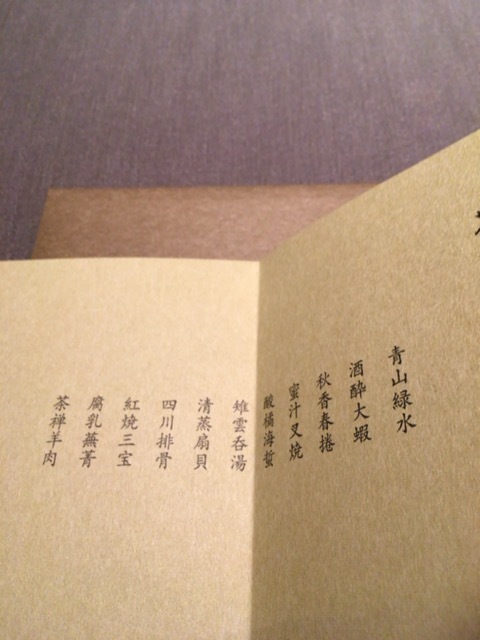 青山緑水
酒酔大蝦
秋香春捲
蜜汁叉焼
酸橘海蜇
雉雲呑湯
清蒸扇貝
四川排骨
紅焼三宝
腐乳蕪菁
茶禅羊肉